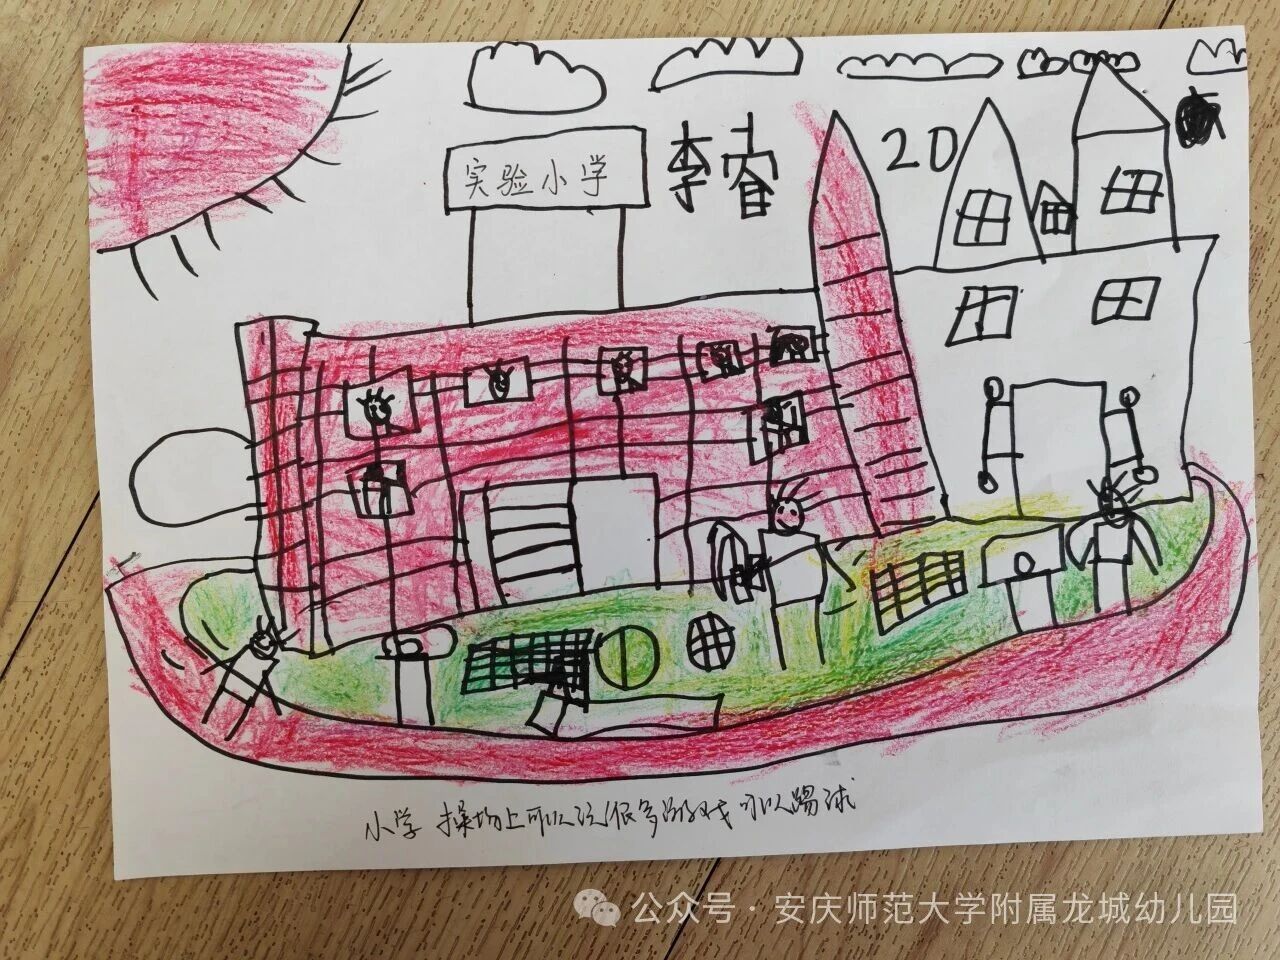 实验小学
李睿
20
小学 操场上可以玩很多游戏 可以踢球
公众号·安庆师范大学附属龙城幼儿园